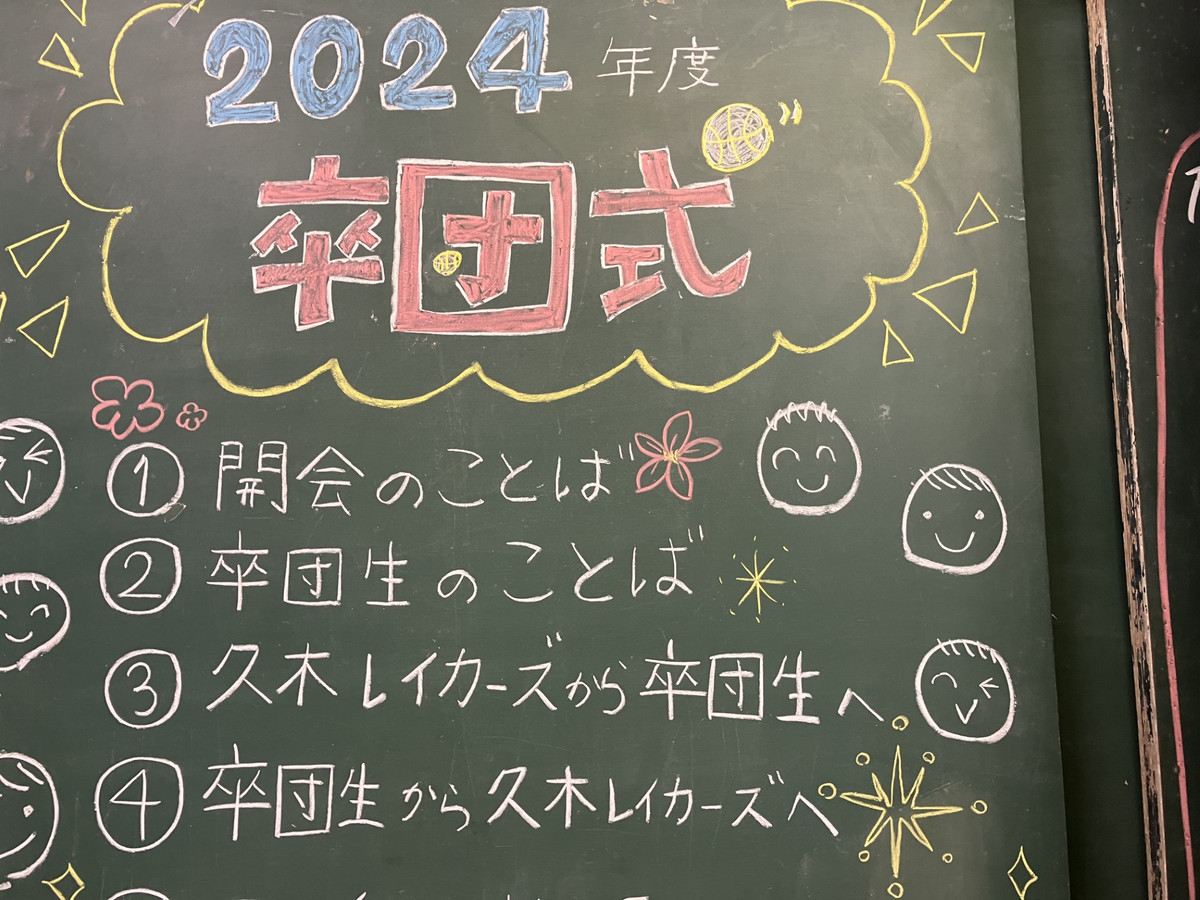 2024年度
卒団式
① 開会のことば
② 卒団生のことば
③ 久木レイカーズから卒団生へ
④ 卒団生から久木レイカーズへ